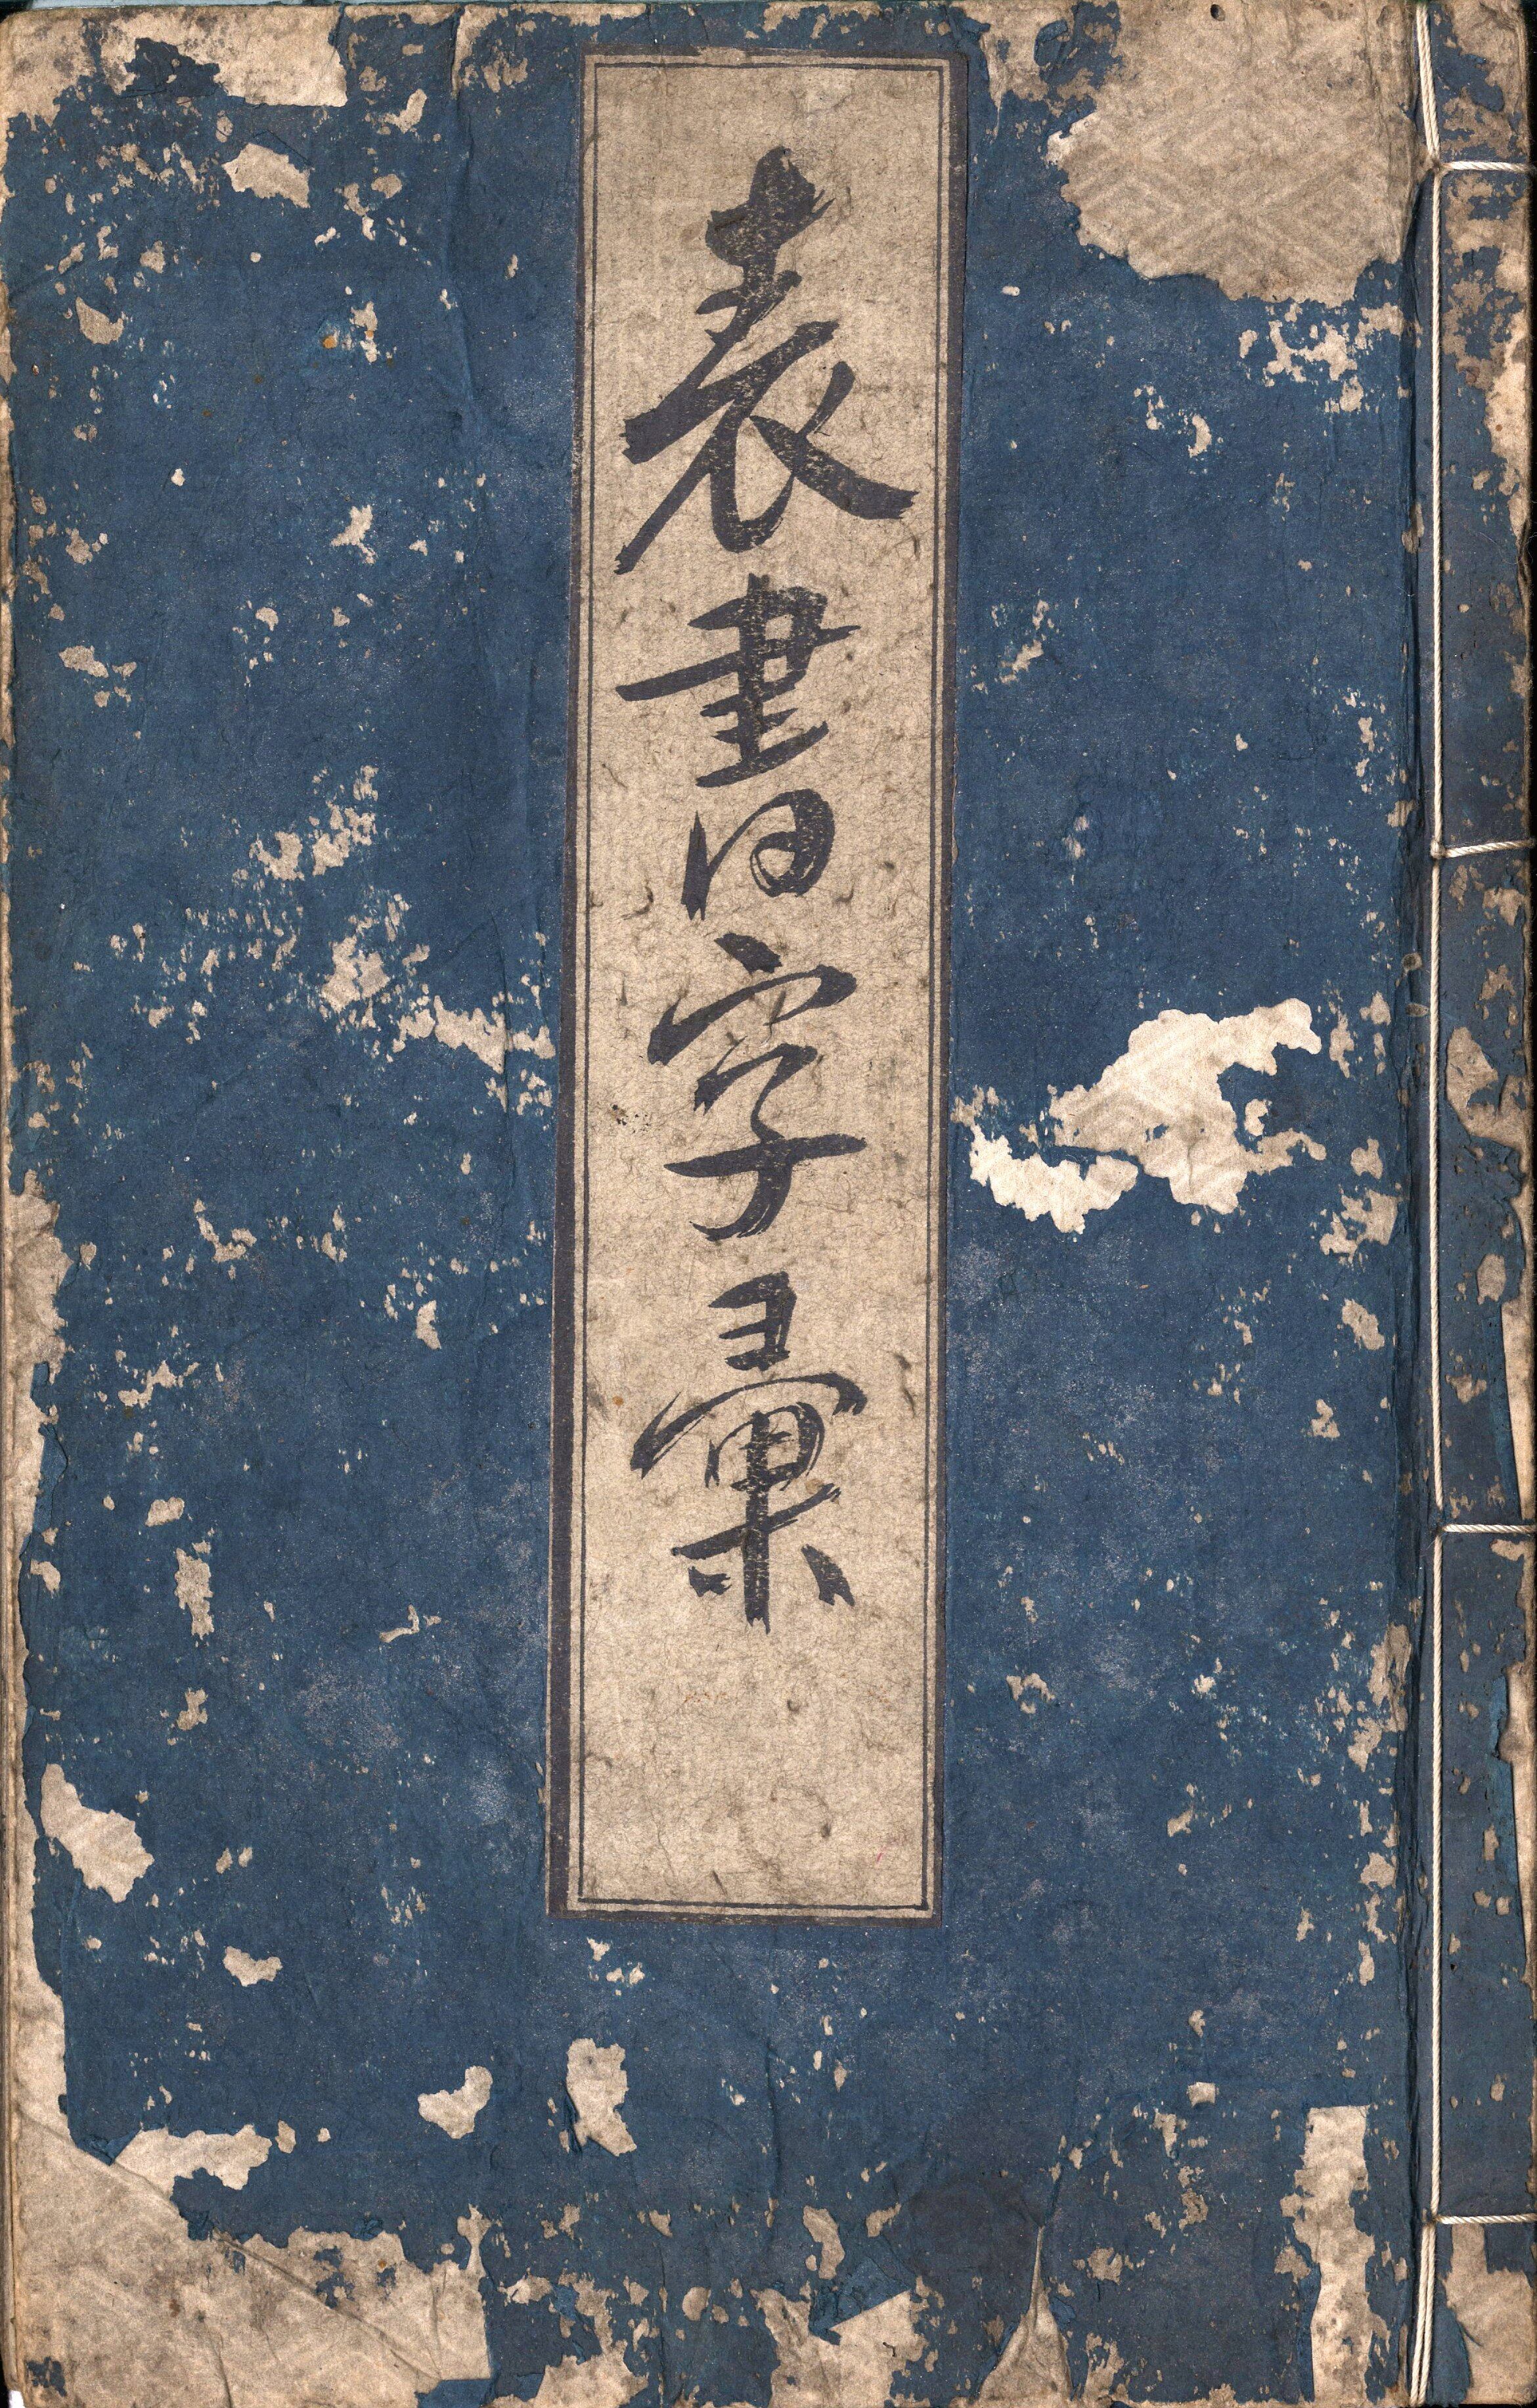 表書字彙